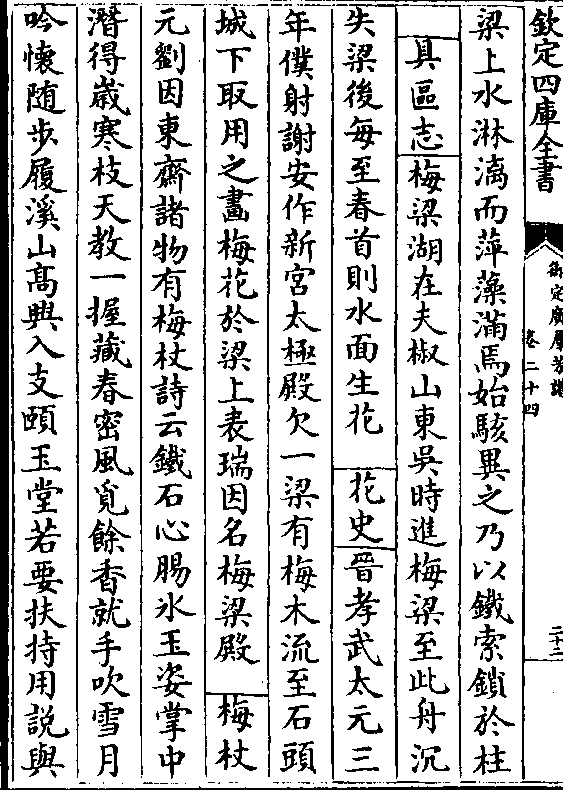 欽定四庫全書
御定廣群芳譜
卷二十四
二十二
梁上水淋漓而萍藻滿焉始駭異之乃以鐵索鎖於柱
具區志梅梁湖在夫椒山東吳時進梅梁至此舟沉
失梁後每至春首則水面生花 花史晉孝武太元三
年僕射謝安作新宮太極殿欠一梁有梅木流至石頭
城下取用之畫梅花於梁上表瑞因名梅梁殿 梅杖
元劉因東齋諸物有梅杖詩云鐵石心腸氷玉姿掌中
潛得歲寒枝天教一握藏春密風覓餘香就手吹雪月
吟懷随步履溪山髙興入支頤玉堂若要扶持用說與